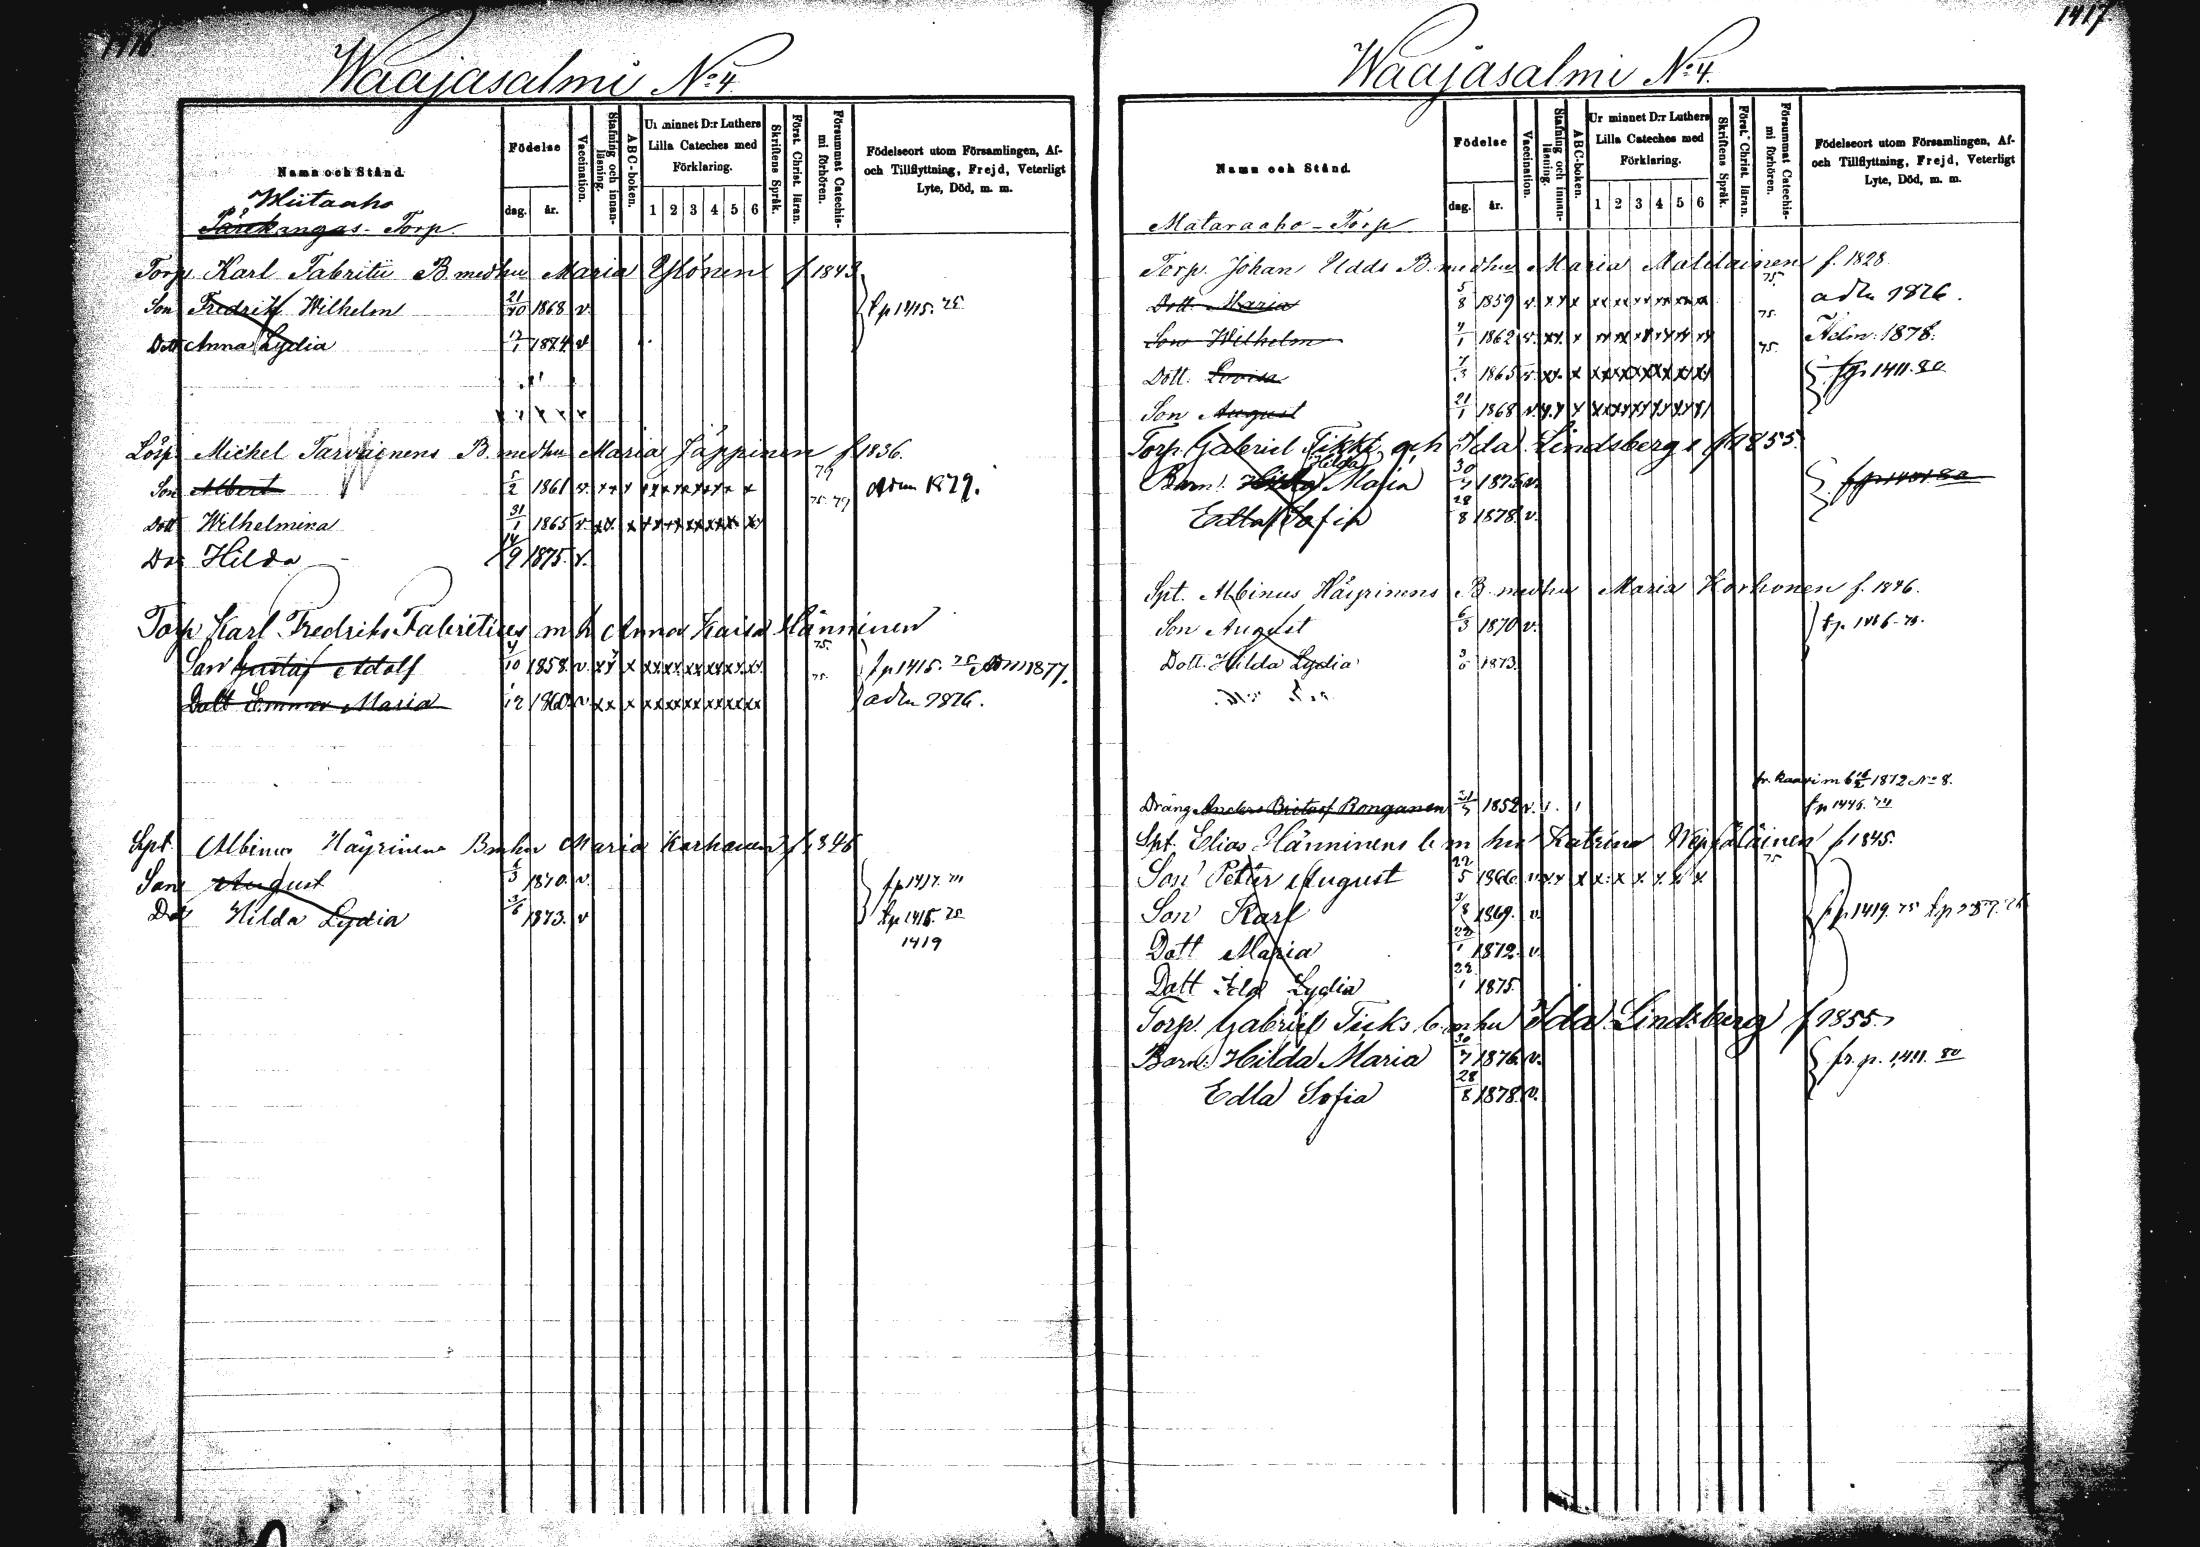 1416
Waajasalmi No 4.
Namn och Stånd.
Födelse
dag.
år.
Vaccination.
Stafning och innan-läsning.
ABC-boken.
Ur minnet D:r Luthers Lilla Cateches med Förklaring.
1 2 3 4 5 6
Skriftens Språk.
Först. Christ. läran.
Försummat Catechis-mi förhören.
Födelseort utom Församlingen, Af- och Tillflyttning, Frejd, Veterligt Lyte, Död, m. m.
Hiitaaho
Torp.
Torp. Karl Fabritii B. medhu Maria Ylönen f 1843
Son Fredrik Wilhelm 21/10 1868 v. fp 1415. 75
Dott Anna Lydia 1874 v
Lösp. Michel Tarvainens B. medhu Maria Jäppinen f 1836.
Son Albert 5/2 1861 v. x x x x x x x x x x 79 adm 1879.
Dott Wilhelmina 31/1 1865 v x x x x x x x x x x 75. 79
Do: Hilda 14/9 1875. v.
Torp Karl Fredrik Fabritius m h Anna Kaisa Hänninen
Son Gustaf Adolf 4/10 1858. v. x x x x x x x x x x 75. fp 1415. 75 adm 1877.
Dott Emma Maria 1/12 1860. v. x x x x x x x x x x 75. adm 1876.
Spt. Albinus Häyrinens B m hu Maria Korhonen f 1846
Son August 6/3 1870. v. fp 1417. 74
Do: Hilda Lydia 3/6 1873. v tp 1415. 75
1419
1417.
Waajasalmi No 4.
Namn och Stånd.
Födelse
dag.
år.
Vaccination.
Stafning och innan-läsning.
ABC-boken.
Ur minnet D:r Luthers Lilla Cateches med Förklaring.
1 2 3 4 5 6
Skriftens Språk.
Först. Christ. läran.
Försummat Catechis-mi förhören.
Födelseort utom Församlingen, Af- och Tillflyttning, Frejd, Veterligt Lyte, Död, m. m.
Mataraaho - Torp
Torp. Johan Udds B. medhu Maria Matilainen f. 1828.
Dott. Maria 5/8 1859 v. x x x x x x x x x x 75. adm 1876.
Son Wilhelm 1862 v. x x x x x x x x x x 75. Adm. 1878.
Dott. Lovisa 1865 v. x x x x x x x x x x 75. fp 1411. 80
Son August 21/1 1868 v. x x x x x x x x x x
Torp. Gabriel Tikki och Ida Lindsberg f 1855.
Barn: Hilda Maria 30/7 1876 v.
Edla Sofia 28/8 1878. v.
Spt. Albinus Häyrinens B. medhu Maria Korhonen f. 1846.
Son August 6/3 1870 v.
Dott. Hilda Lydia 3/6 1873.
1872 No 8.
Dräng Anders Ronganen 1852 v. tp 1446. 74
Spt. Elias Hänninens b m hu Katrina Neppäläinen f 1845.
Son Petter August 22/5 1866. v. x x x x x x x x 75
Son Karl 1869. v. fp 1419. 75
Dott Maria 1872. v.
Dott Ida Lydia 22/1 1875.
Torp. Gabriel Ticks b m hu Ida Lindsberg f 1855.
Barn: Hilda Maria 30/7 1876. v. fr. p. 1411. 80
Edla Sofia 28/8 1878. v.